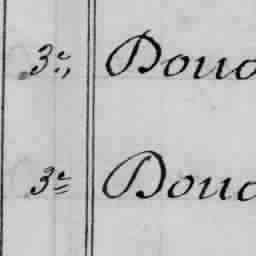 3e Douc
3e Douc